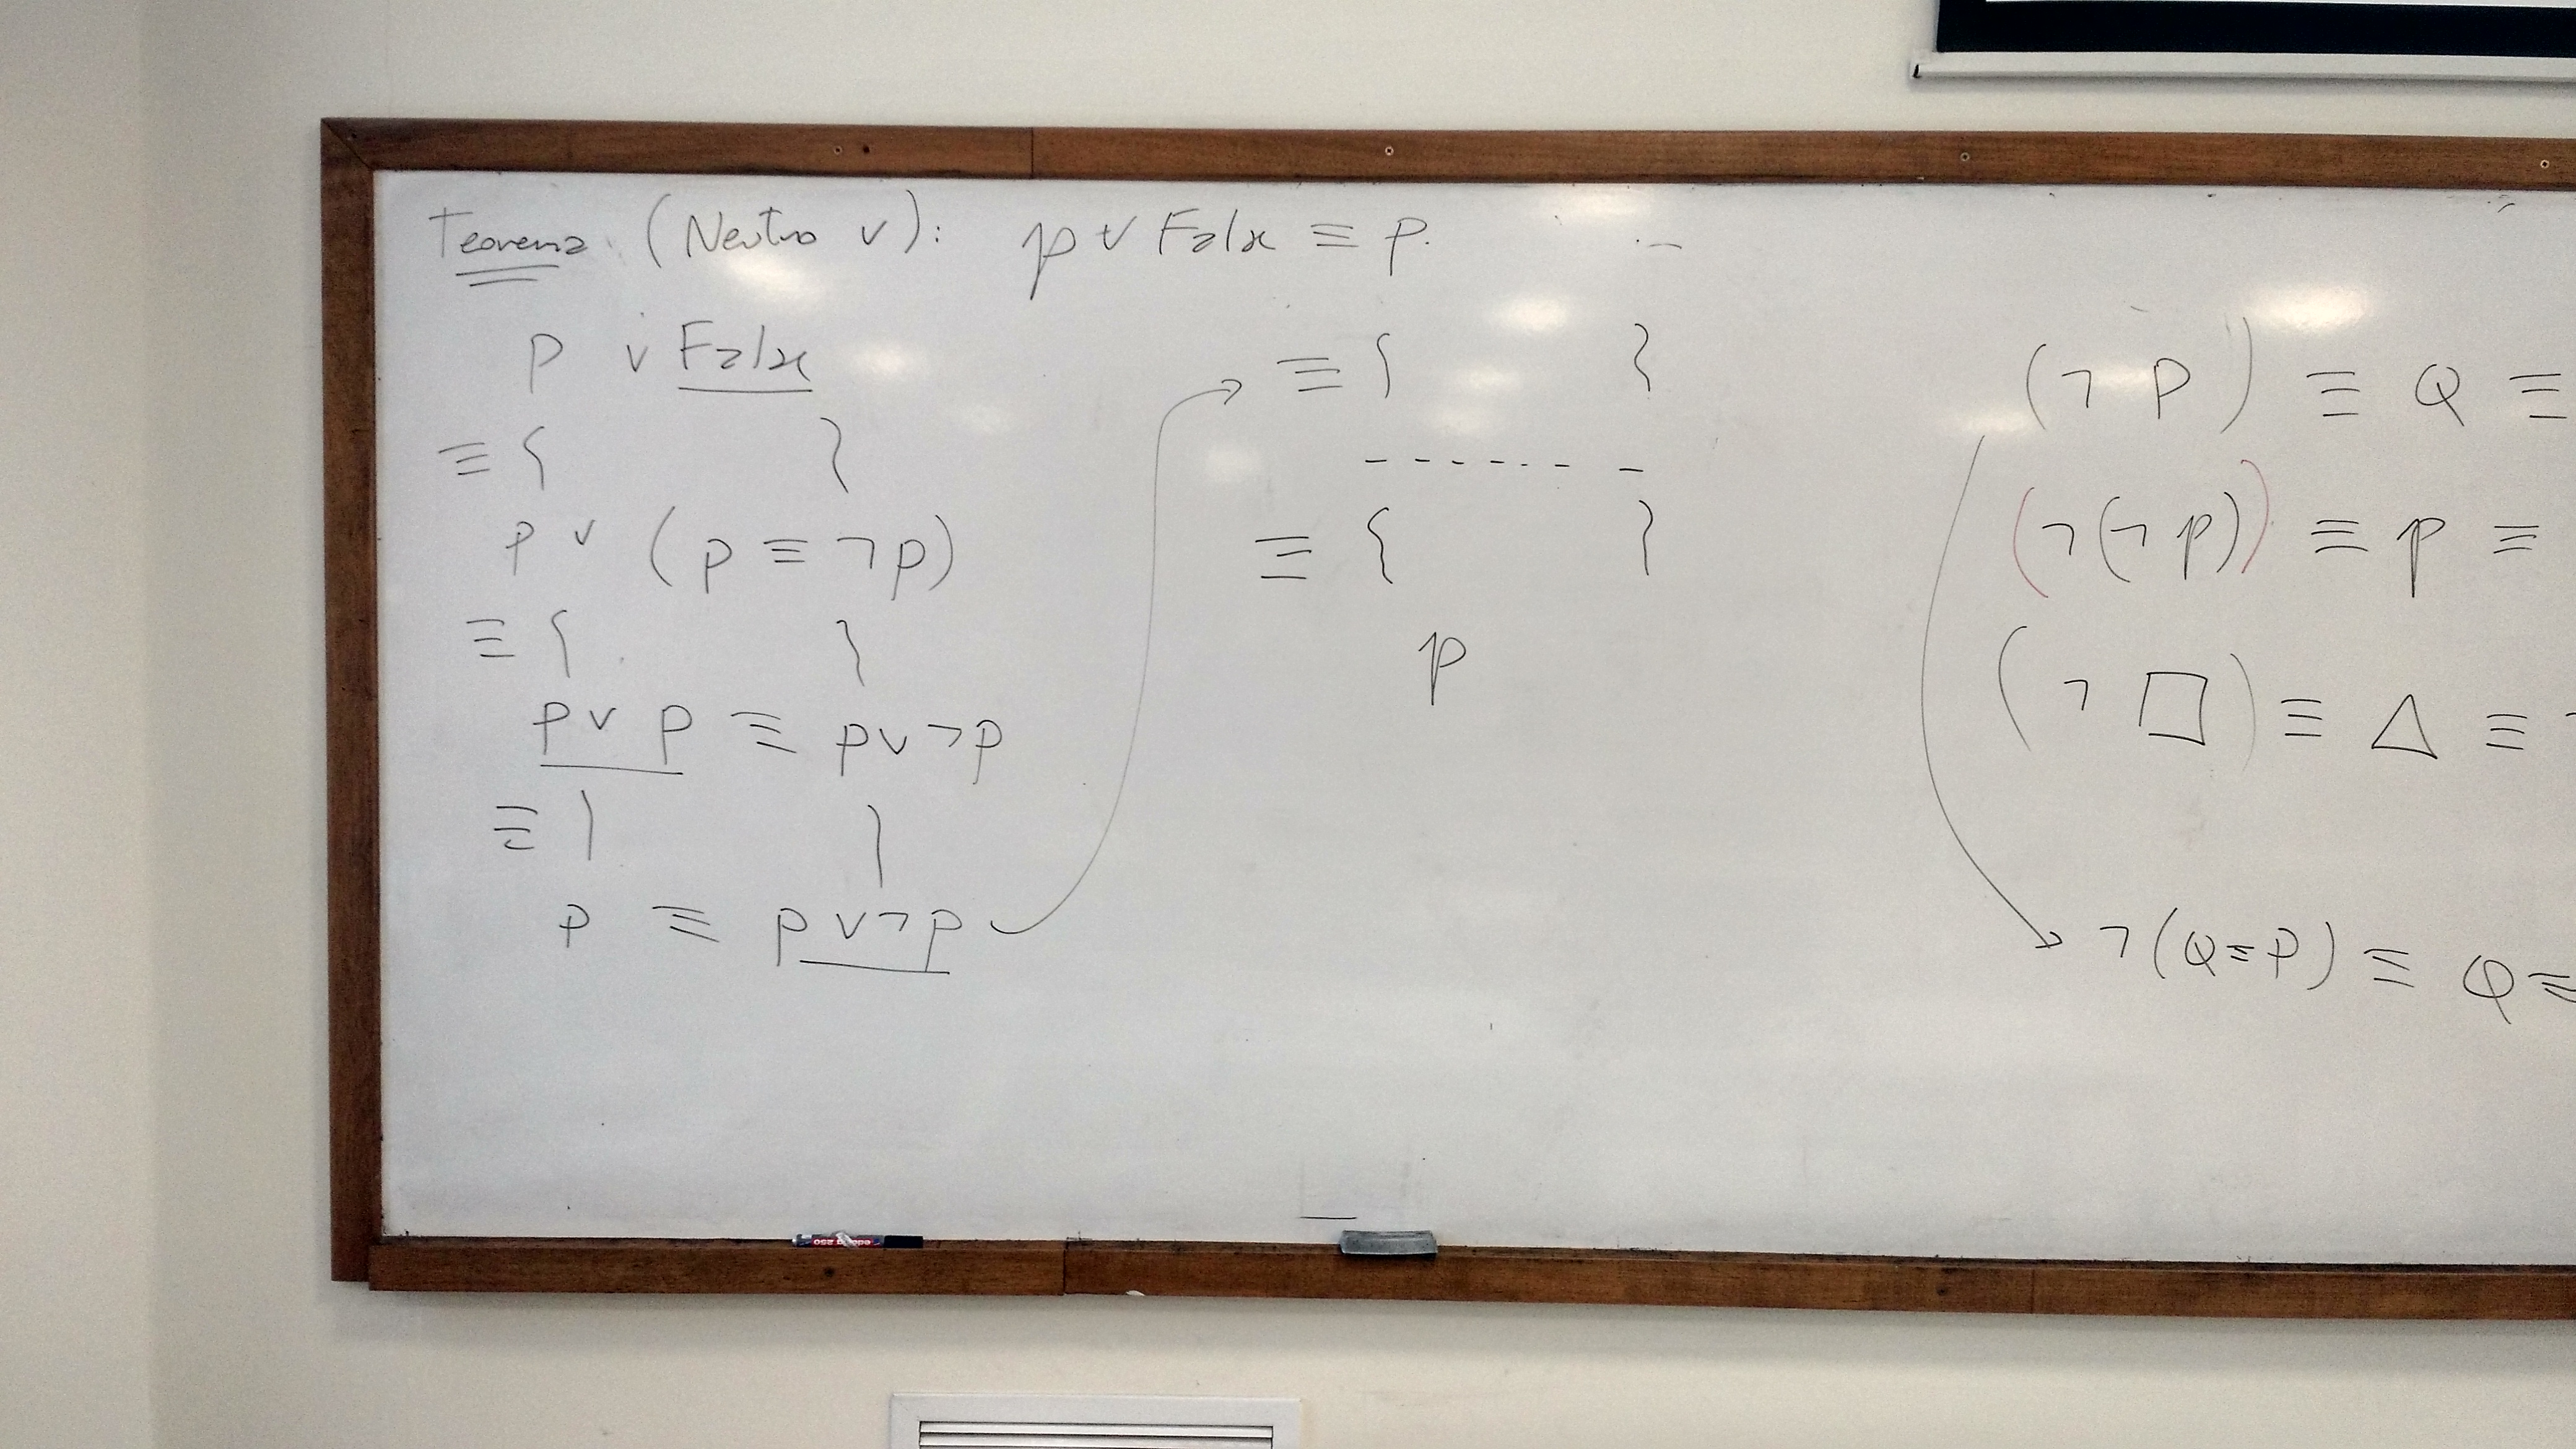 Teorema (Neutro ∨): p ∨ False ≡ p.
p ∨ False
≡ { }
p ∨ (p ≡ ¬p)
≡ { }
p ∨ p ≡ p ∨ ¬p
≡ { }
p ≡ p ∨ ¬p
≡ { }
- - - - - - -
≡ { }
p
(¬ P) ≡ Q ≡
(¬(¬ p)) ≡ p ≡
(¬ □) ≡ △ ≡
¬(Q ≡ P) ≡ Q ≡
edding 250